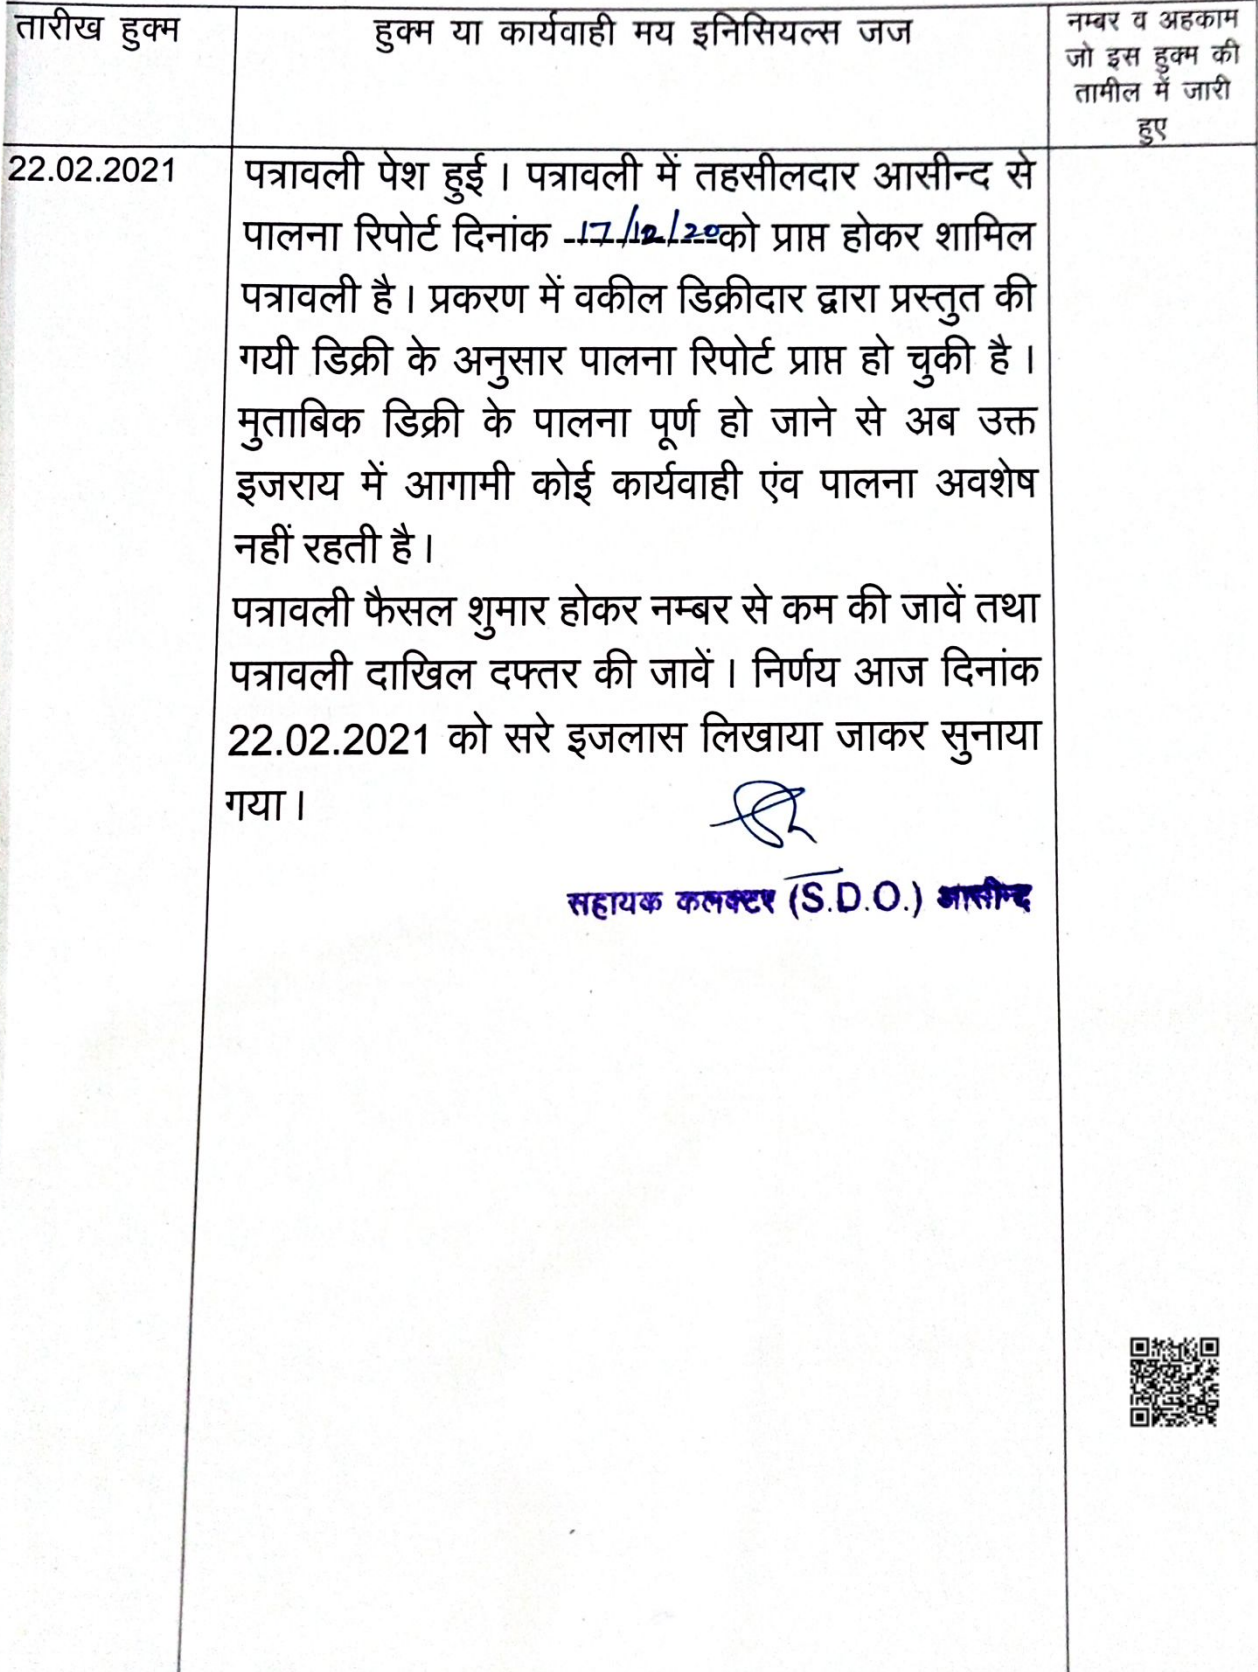 तारीख हुक्म
हुक्म या कार्यवाही मय इनिसियल्स जज
नम्बर व अहकाम
जो इस हुक्म की
तामील में जारी
हुए
22.02.2021
पत्रावली पेश हुई। पत्रावली में तहसीलदार आसीन्द से
पालना रिपोर्ट दिनांक 17/12/20 को प्राप्त होकर शामिल
पत्रावली है। प्रकरण में वकील डिक्रीदार द्वारा प्रस्तुत की
गयी डिक्री के अनुसार पालना रिपोर्ट प्राप्त हो चुकी है।
मुताबिक डिक्री के पालना पूर्ण हो जाने से अब उक्त
इजराय में आगामी कोई कार्यवाही एंव पालना अवशेष
नहीं रहती है।
पत्रावली फैसल शुमार होकर नम्बर से कम की जावें तथा
पत्रावली दाखिल दफ्तर की जावें। निर्णय आज दिनांक
22.02.2021 को सरे इजलास लिखाया जाकर सुनाया
गया।
सहायक कलक्टर (S.D.O.) आसीन्द